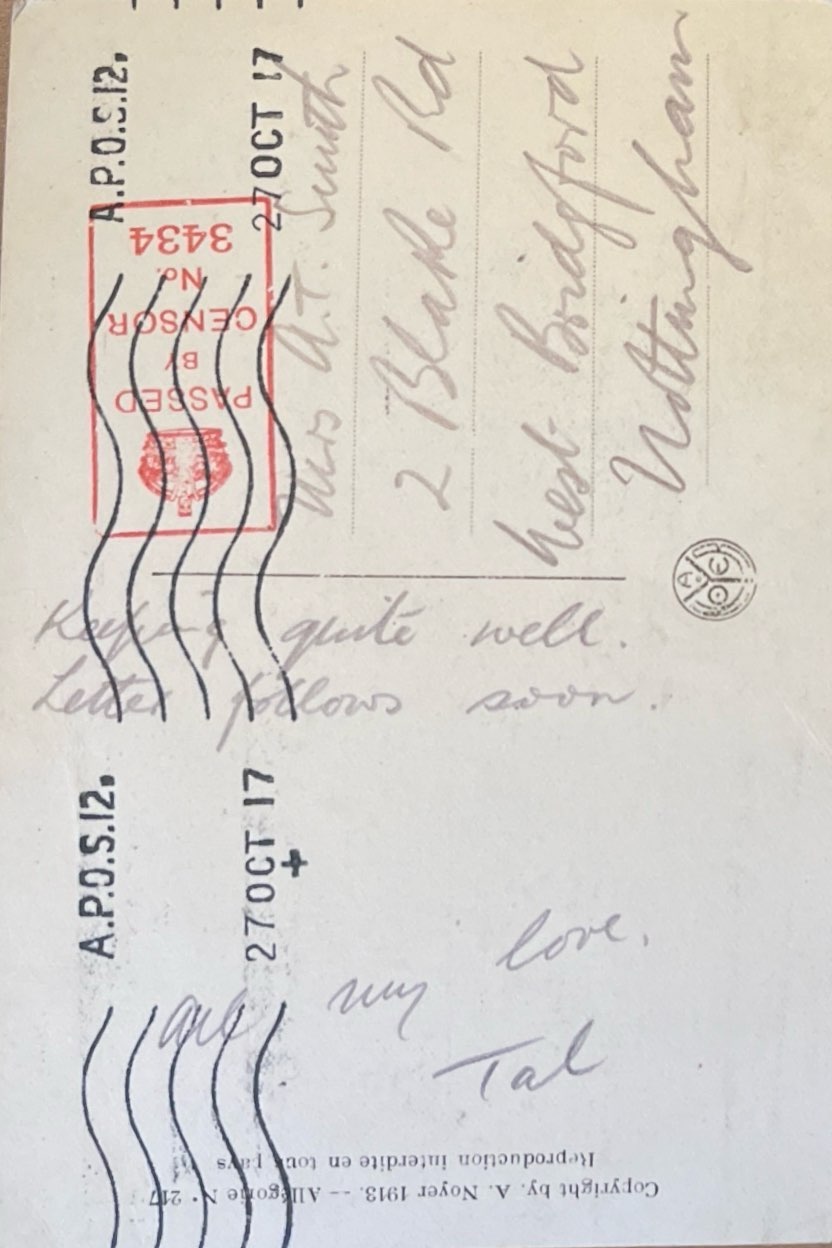 A.P.O.S.12.
27 OCT 17
PASSED
BY
CENSOR
No.
3434
Mrs A.T. Smith
2 Blake Rd
West Bridgford
Nottingham
Keeping quite well.
Letter follows soon.
A.P.O.S.12.
27 OCT 17
All my love.
Tal
Copyright by. A. Noyer 1913. -- Allégorie N° 217
Reproduction interdite en tous pays